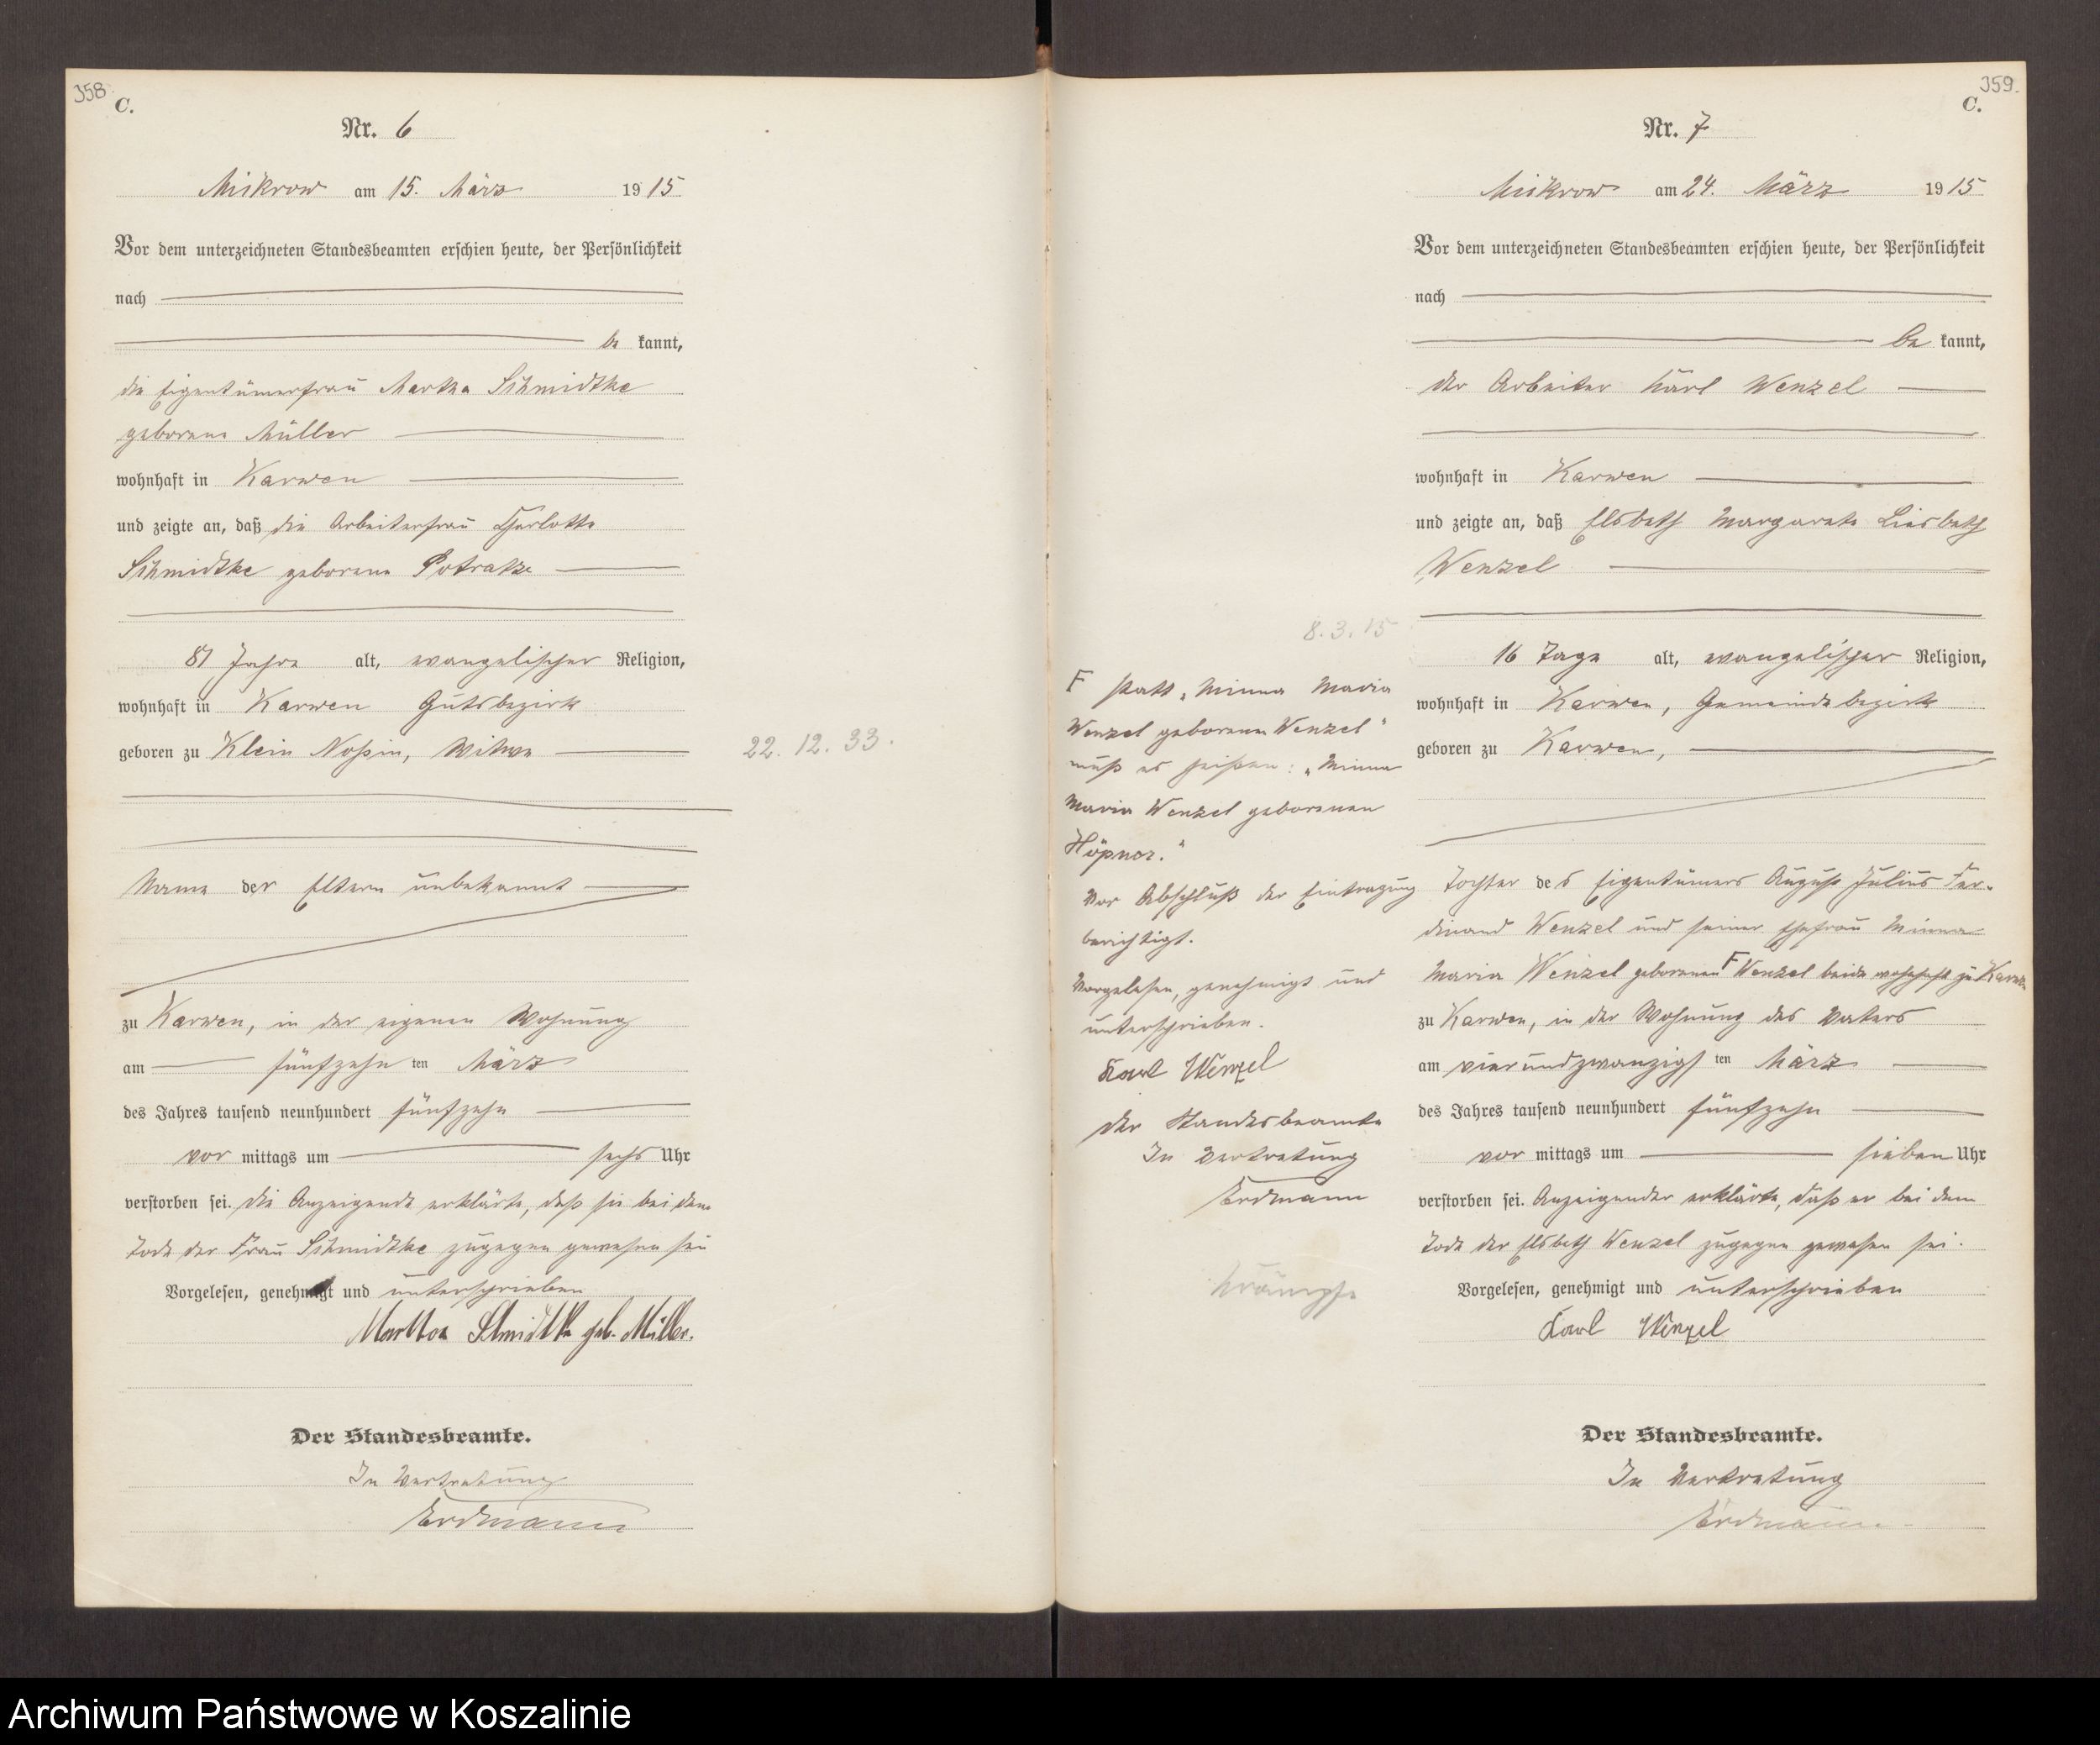 358.
C.
Nr. 6
Mikrow am 15. März 1915
Vor dem unterzeichneten Standesbeamten erschien heute, der Persönlichkeit
nach
be kannt,
die Eigentümerfrau Martha Schmidtke
geborene Müller
wohnhaft in Karwen
und zeigte an, daß die Arbeiterfrau Charlotte
Schmidtke geborene Potratze
81 Jahre alt, evangelischer Religion,
wohnhaft in Karwen Gutsbezirk
geboren zu Klein Noßin, Witwe
22. 12. 33.
Name der Eltern unbekannt
zu Karwen, in der eigenen Wohnung
am fünfzehn ten März
des Jahres tausend neunhundert fünfzehn
vor mittags um sechs Uhr
verstorben sei. Die Anzeigende erklärte, daß sie bei dem
Tode der Frau Schmidtke zugegen gewesen sei
Vorgelesen, genehmigt und unterschrieben
Martha Schmidtke geb. Müller.
Der Standesbeamte.
In Vertretung
Erdmann
359.
C.
Nr. 7
Mikrow am 24. März 1915
Vor dem unterzeichneten Standesbeamten erschien heute, der Persönlichkeit
nach
be kannt,
der Arbeiter Karl Wenzel
wohnhaft in Karwen
und zeigte an, daß Elsbeth Margarete Liesbeth
Wenzel
16 Tage alt, evangelischer Religion,
wohnhaft in Karwen, Gemeindebezirk
geboren zu Karwen,
Tochter des Eigentümers August Julius Fer-
dinand Wenzel und seiner Ehefrau Minna
Maria Wenzel geborenen F Wenzel beide wohnhaft zu Karwen
zu Karwen, in der Wohnung des Vaters
am vierundzwanzigs ten März
des Jahres tausend neunhundert fünfzehn
vor mittags um sieben Uhr
verstorben sei. Anzeigender erklärte, daß er bei dem
Tode der Elsbeth Wenzel zugegen gewesen sei.
Vorgelesen, genehmigt und unterschrieben
Karl Wenzel
Der Standesbeamte.
In Vertretung
Erdmann
8. 3. 15
F statt „Minna Maria
Wenzel geborenen Wenzel"
muß es heißen: „Minna
Maria Wenzel geborenen
Höpner."
Vor Abschluß der Eintragung
berichtigt.
Vorgelesen, genehmigt und
unterschrieben.
Karl Wenzel
Der Standesbeamte
In Vertretung
Erdmann
Krämpfe
Archiwum Państwowe w Koszalinie